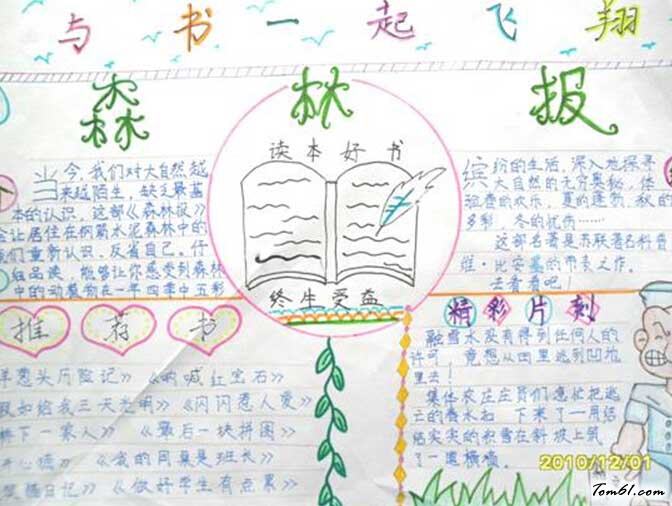 与书一起飞翔
森林报
当今,我们对大自然越
来越陌生,缺乏最基
本的认识,这部《森林报》
会让居住在钢筋水泥森林中的
我们重新认识,反省自己。仔
细品读,能够让你感受到森林
中的动植物在一年四季中五彩
读本好书
终生受益
缤纷的生活,深入地探寻
大自然的无穷奥秘,体
验春的欢乐,夏的蓬勃,秋的
多彩,冬的忧伤……
这部名著是苏联著名科普
维·比安基的带表之作。
去看看吧!
推荐书
洋葱头历险记》《呐喊红宝石》
假如给我三天光明》《闪闪惹人爱》
《最后一块拼图》
《我的同桌是班长》
日记》《做好学生有点累》
精彩片刻
融雪水没有得到任何人的
许可,竟想从田里逃到凹地
里去!
集体农庄庄员们急忙把逃
亡的春水 下来了一用结
结实实的积雪在斜坡上筑
了一道横墙。
2010/12/01
Tom61.com